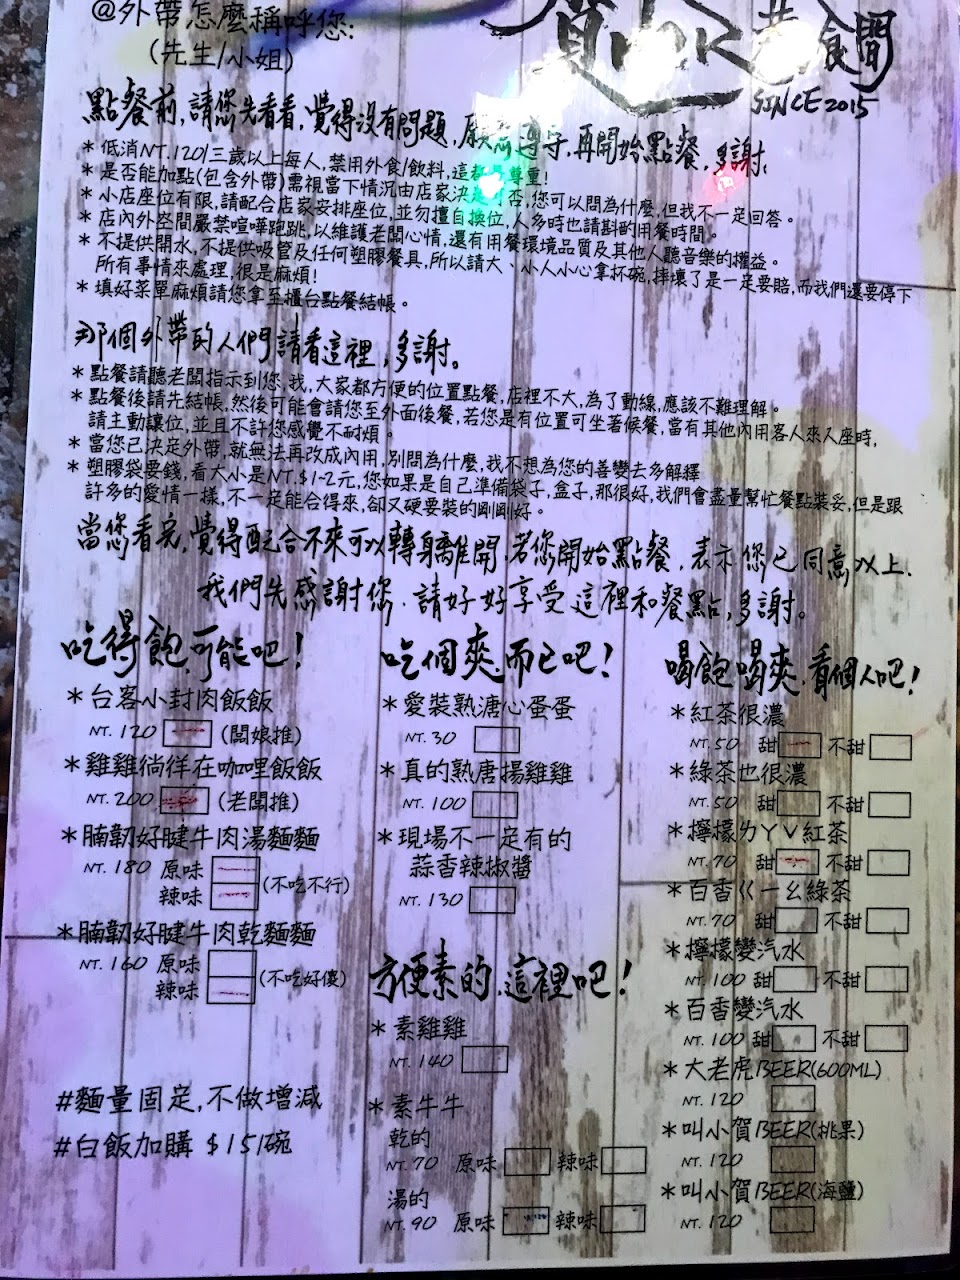 @外帶怎麼稱呼您:
(先生/小姐)
食間
SINCE 2015
點餐前,請您先看看,覺得沒有問題,願意遵守,再開始點餐,多謝.
*低消NT.120/三歲以上每人,禁用外食/飲料,這都是尊重!
*是否能加點(包含外帶)需視當下情況由店家決定可否,您可以問為什麼,但我不一定回答。
*小店座位有限,請配合店家安排座位,並勿擅自換位,人多時也請斟酌用餐時間。
*店內外空間嚴禁喧嘩跑跳,以維護老闆心情,還有用餐環境品質及其他人聽音樂的權益。
*不提供開水,不提供吸管及任何塑膠餐具,所以請大、小人小心拿杯碗,摔壞了是一定要賠,而我們還要停下
所有事情來處理,很是麻煩!
*填好菜單麻煩請您拿至櫃台點餐結帳。
那個外帶的人們請看這裡,多謝。
*點餐請聽老闆指示到您,我,大家都方便的位置點餐,店裡不大,為了動線,應該不難理解。
*點餐後請先結帳,然後可能會請您至外面後餐,若您是有位置可坐著候餐,當有其他內用客人來入座時,
請主動讓位,並且不許您感覺不耐煩。
*當您已決定外帶,就無法再改成內用,別問為什麼,我不想為您的善變去多解釋
*塑膠袋要錢,看大小是NT.$1-2元,您如果是自己準備袋子,盒子,那很好,我們會盡量幫忙餐點裝妥,但是跟
許多的愛情一樣,不一定能合得來,卻又硬要裝的剛剛好。
當您看完,覺得配合不來可以轉身離開,若您開始點餐,表示您已同意以上.
我們先感謝您.請好好享受這裡和餐點,多謝。
吃得飽,可能吧!
*台客小封肉飯飯
NT.120 (闆娘推)
*雞雞徜徉在咖哩飯飯
NT.200 (老闆推)
*腩韌好腱牛肉湯麵麵
NT.180 原味
辣味
(不吃不行)
*腩韌好腱牛肉乾麵麵
NT.160 原味
辣味
(不吃好傻)
#麵量固定,不做增減
#白飯加購 $15/碗
吃個爽,而已吧!
*愛裝熟溏心蛋蛋
NT.30
*真的熟唐揚雞雞
NT.100
*現場不一定有的
蒜香辣椒醬
NT.130
方便素的,這裡吧!
*素雞雞
NT.140
*素牛牛
乾的
NT.70 原味 辣味
湯的
NT.90 原味 辣味
喝飽喝爽,看個人吧!
*紅茶很濃
NT.50 甜 不甜
*綠茶也很濃
NT.50 甜 不甜
*檸檬ㄌㄚˇ紅茶
NT.70 甜 不甜
*百香ㄍㄧㄠ綠茶
NT.70 甜 不甜
*檸檬變汽水
NT.100 甜 不甜
*百香變汽水
NT.100 甜 不甜
*大老虎BEER(600ML)
NT.120
*叫小賀BEER(桃果)
NT.120
*叫小賀BEER(海鹽)
NT.120